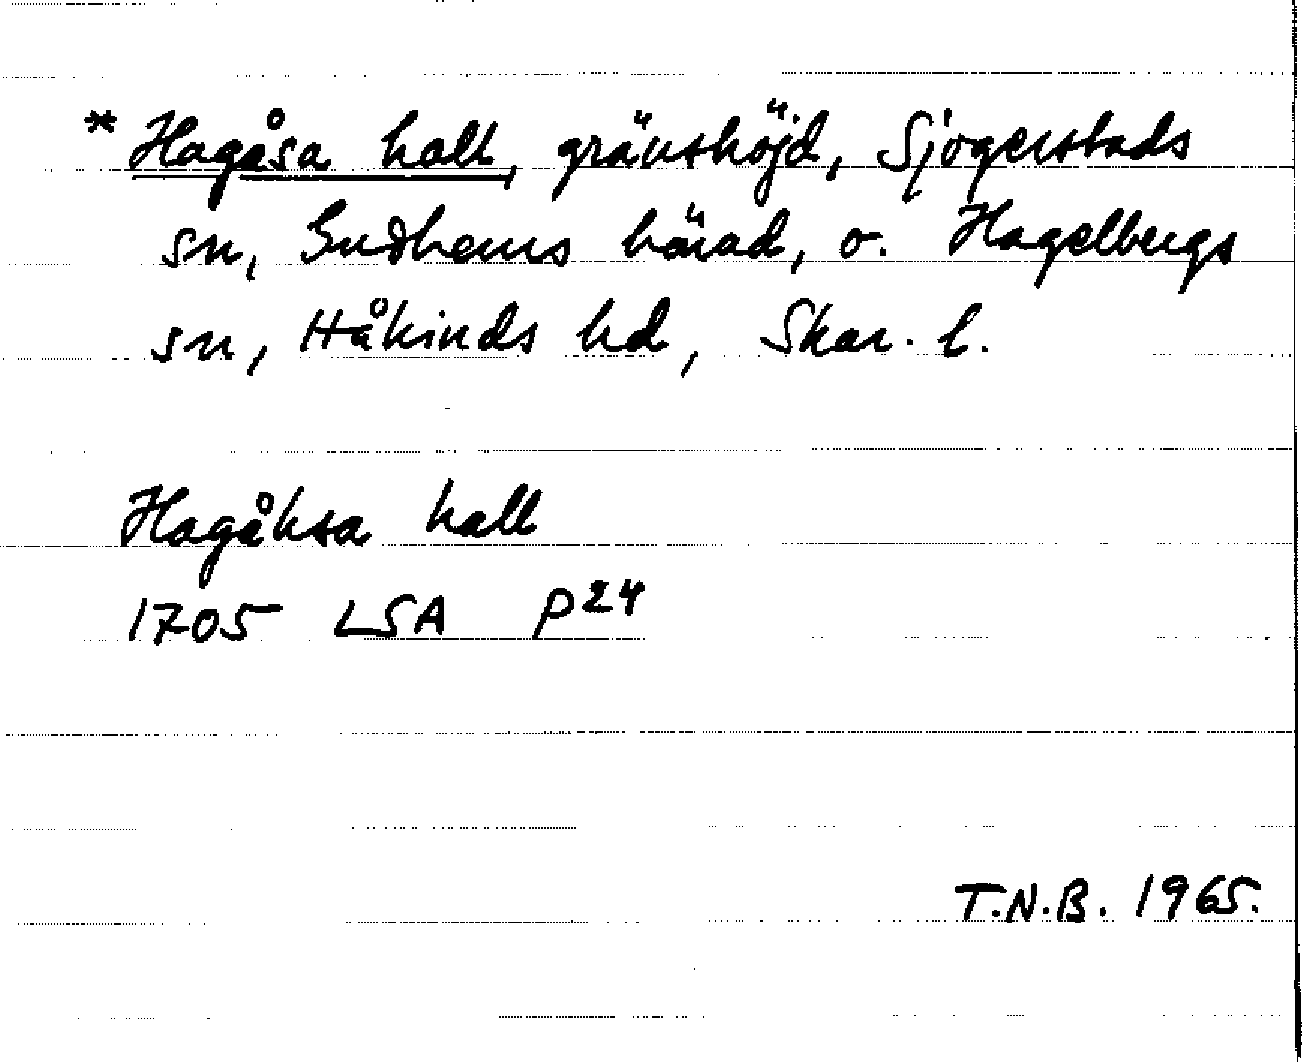 * Hagåsa hall, gränshöjd, Sjogerstads
sn, Gudhems härad, o. Hagelbergs
sn, Håkinds hd, Skar. l.
Hagåhsa hall
1705 LSA P24
T.N.B. 1965.